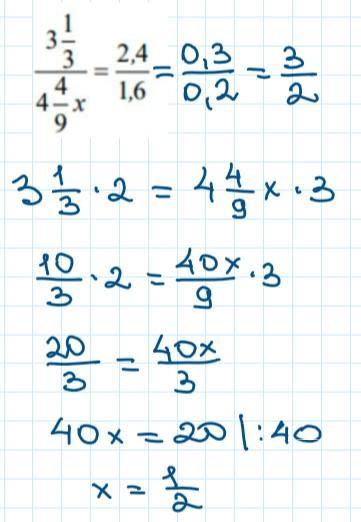 3 1/3 / 4 4/9 x = 2,4 / 1,6 = 0,3 / 0,2 = 3/2
3 1/3 · 2 = 4 4/9 x · 3
10/3 · 2 = 40x/9 · 3
20/3 = 40x/3
40x = 20 |:40
x = 1/2